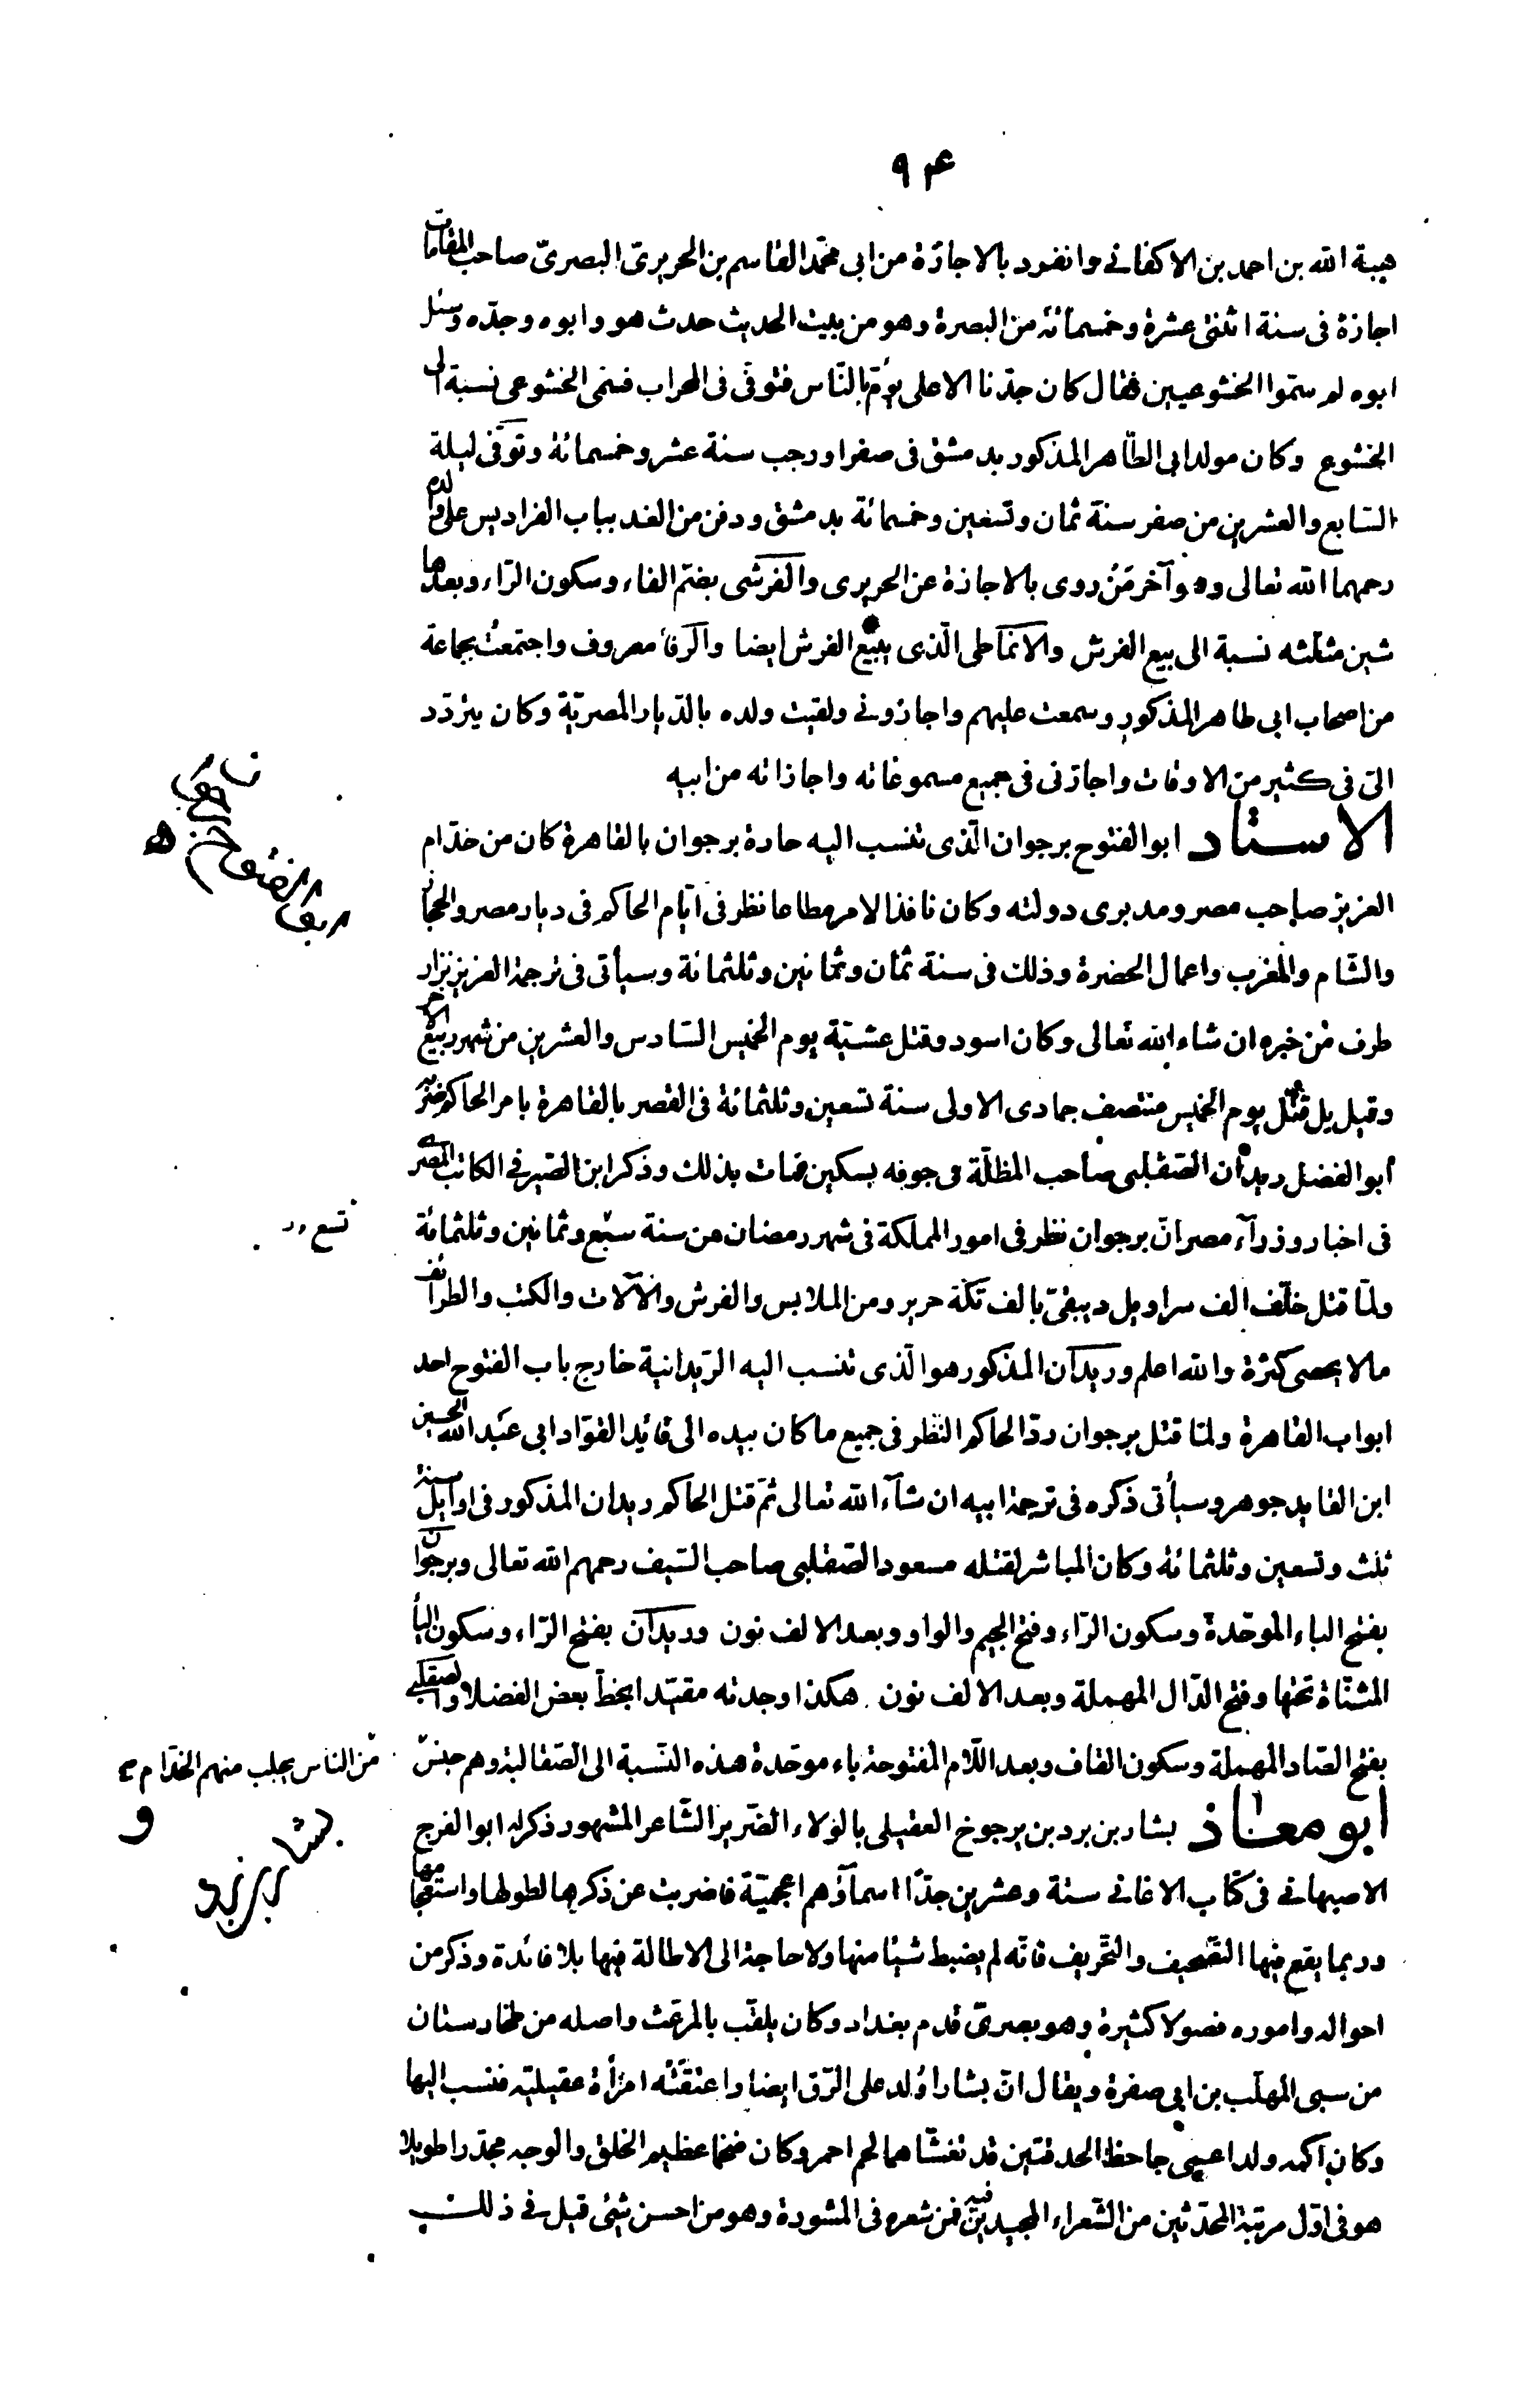 ٩٤
هبة الله بن احمد بن الاكفانى وانفرد بالاجازة من ابى محمّد القاسم بن الحريرىّ البصرىّ صاحب المقامات
اجازة فى سنة اثنتى عشرة وخمسمائة من البصرة وهو من بيت الحديث حدث هو وابوه وجدّه وسئل
ابوه لم سمّوا الخشوعيين فقال كان جدّنا الاعلى يؤمّ بالنّاس فتوفّى فى المحراب فسمى الخشوعى نسبة الى
الخشوع وكان مولد ابى الطّاهر المذكور بدمشق فى صفر او رجب سنة عشر وخمسمائة وتوفّى ليلة
السّابع والعشرين من صفر سنة ثمان وتسعين وخمسمائة بدمشق ودفن من الغد بباب الفراديس على والده
رحمهما الله تعالى وهو آخر مَنْ روى بالاجازة عن الحريرى والفرشى بضمّ الفاء وسكون الرّاء وبعدها
شين مثلثه نسبة الى بيع الفرش والانماطى الّذى يبيع الفرش ايضا والرفا معروف واجتمعتُ بجماعة
من اصحاب ابى طاهر المذكور وسمعت عليهم واجازونى ولقيت ولده بالدّيار المصريّة وكان يتردّد
الىّ فى كثير من الاوقات واجازنى فى جميع مسموعاته واجازاته من ابيه
الاستاد ابو الفتوح برجوان الّذى تنسب اليه حارة برجوان بالقاهرة كان من خدّام
العزيز صاحب مصر ومدبرى دولته وكان نافذ الامر مطاعا نظر فى ايّام الحاكم فى ديار مصر والحجاز
والشّام والمغرب واعمال الحضرة وذلك فى سنة ثمان وثمانين وثلثمائة وسيأتى فى ترجمة العزيز نزار
طرف من خبره ان شاء الله تعالى وكان اسود وقتل عشيّة يوم الخميس السّادس والعشرين من شهر ربيع الآخر
وقيل بل قتل يوم الخميس منتصف جمادى الاولى سنة تسعين وثلثمائة فى القصر بالقاهرة بامر الحاكم ضربه
أبو الفضل ريدان الصّقلبى صاحب المظلّة فى جوفه بسكين فمات بذلك وذكر ابن الصّيرفى الكاتب المصرى
فى اخبار وزرآء مصر انّ برجوان نظر فى امور المملكة فى شهر رمضان من سنة سبع وثمانين وثلثمائة
تسع
ولمّا قتل خلّف الف سراويل دبيقىّ بالف تكّة حرير ومن الملابس والفرش والآلات والكتب والطرائف
مالا يحصى كثرة والله اعلم وريدان المذكور هو الّذى تنسب اليه الرّيدانية خارج باب الفتوح احد
ابواب القاهرة ولمّا قتل برجوان ردّ الحاكم النّظر فى جميع ما كان بيده الى قائد القوّاد ابى عبد الله الحسين
ابن القايد جوهر وسيأتى ذكره فى ترجمة ابيه ان شآء الله تعالى ثمّ قتل الحاكم ريدان المذكور فى اوايل سنة
ثلث وتسعين وثلثمائة وكان المباشر لقتله مسعود الصّقلبى صاحب السّيف رحمهم الله تعالى وبرجوان
بفتح الباء الموحّدة وسكون الرّاء وفتح الجيم والواو وبعد الالف نون وريدان بفتح الرّاء وسكون اليا
المثنّاة تحتها وفتح الدّال المهملة وبعد الالف نون هكذا وجدته مقيّدا بخطّ بعض الفضلا والصقلبى
بفتح الصّاد المهملة وسكون القاف وبعد اللّام المفتوحة باء موحّدة هذه النّسبة الى الصّقالبة وهم جنسٌ
من النّاس يجلب منهم الخدّام
أبو معاذ بشار بن برد بن يرجوخ العقيلى بالولاء الضّرير الشّاعر المشهور ذكر له ابو الفرج
بشار بن برد
الاصبهانى فى كتاب الاغانى ستة وعشرين جدّا اسمآؤهم اعجميّة فاضربت عن ذكرها لطولها واستعجامها
وربما يقع فيها التّصحيف والتّحريف فانّه لم يضبط شيئا منها ولا حاجة الى الاطالة فيها بلا فائدة وذكر من
احواله واموره فصولا كثيرة وهو بصرىّ قدم بغداد وكان يلقّب بالمرعّث واصله من طخارستان
من سبى المهلّب بن ابى صفرة ويقال انّ بشارا وُلد على الرّقّ ايضا واعتقَتْه امرأة عقيليّة فنسب اليها
وكان اكمه ولد اعمى جاحظ الحدقتين قد تغشّاهما لحم احمر وكان ضخما عظيم الخلق والوجه مجدّرا طويلا
هو فى اوّل مرتبة المحدّثين من الشّعراء المجيدين فيه فمن شعره فى المشورة وهو من احسن شئ قيل فى ذلك